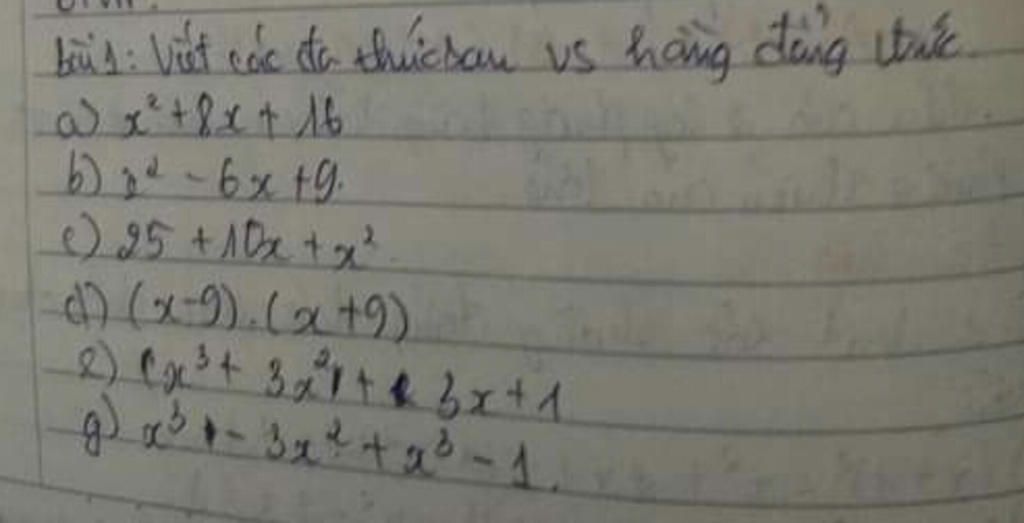 bài 1: Viết các đa thức sau vs hằng đẳng thức
a) x² + 8x + 16
b) x² - 6x + 9.
c) 25 + 10x + x²
d) (x-9).(x+9)
e) (x³ + 3x² + 3x + 1
g) x³ - 3x² + x³ - 1.